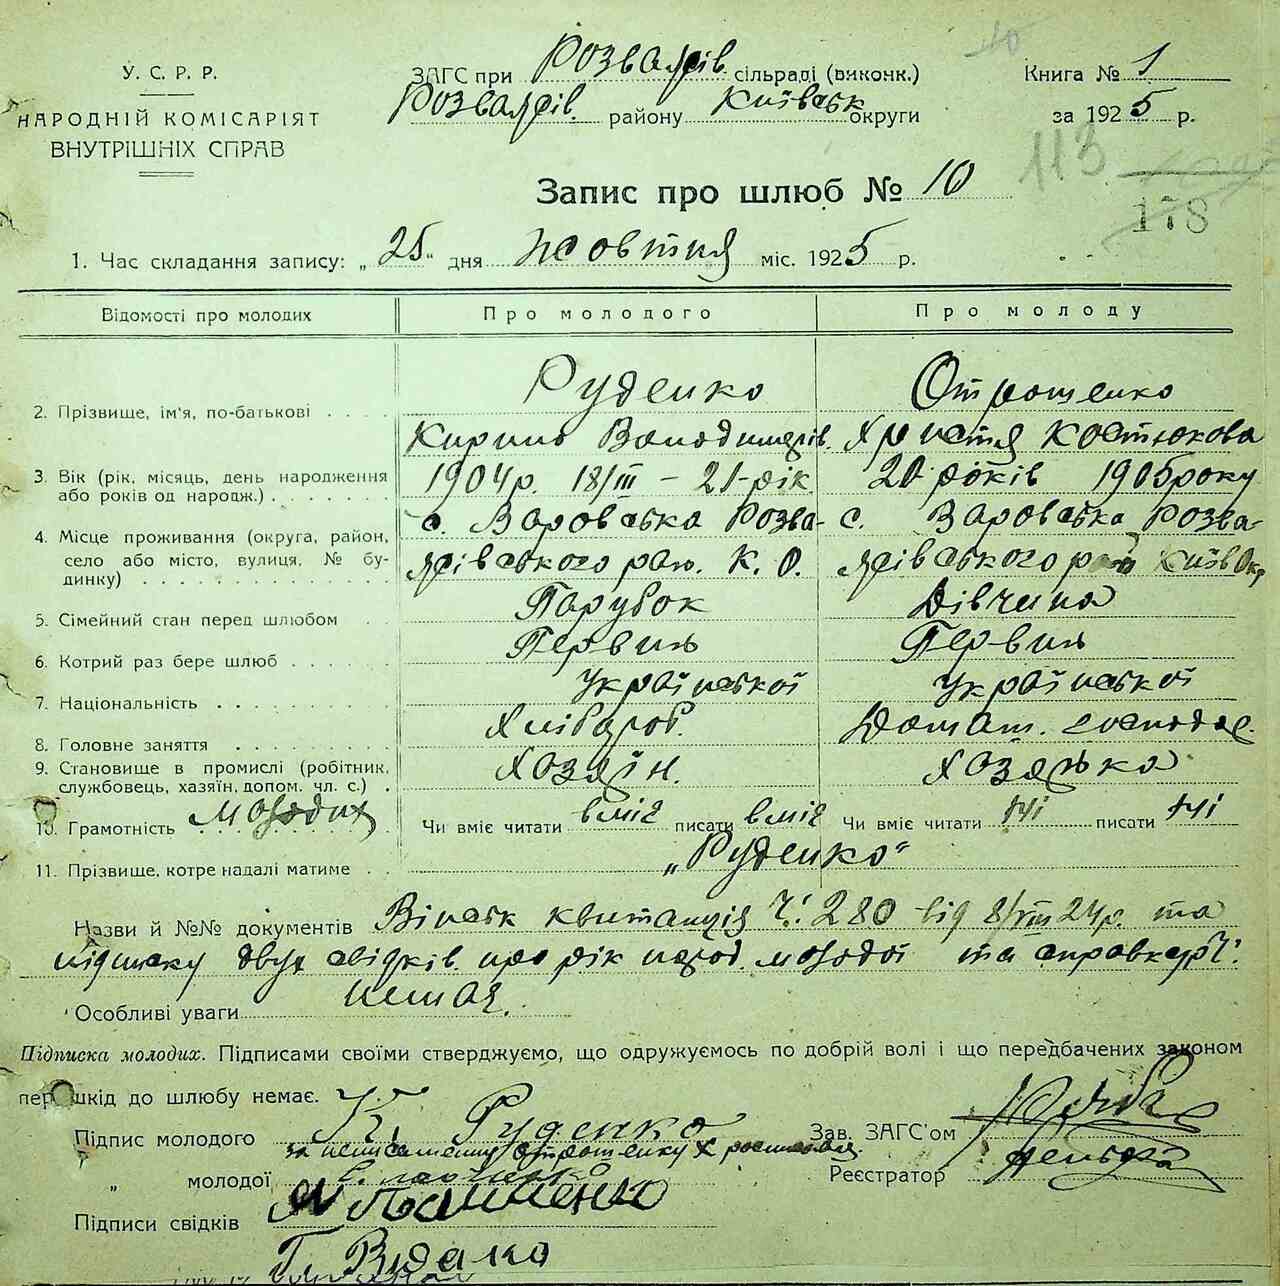 У. С. Р. Р.
НАРОДНІЙ КОМІСАРІЯТ
ВНУТРІШНІХ СПРАВ
ЗАГС при Розважів сільраді (виконк.)
Розважів. району Київськ округи
Книга № 1
за 1925 р.
113
178
Запис про шлюб № 10
1. Час складання запису: „25" дня жовтня міс. 1925 р.
Відомості про молодих Про молодого Про молоду
2. Прізвище, ім'я, по-батькові Руденко Отрошенко
Кирило Володимерів. Христя Костюкова
3. Вік (рік, місяць, день народження або років од народж.) 1904р. 18/III - 21-рік 20 років 1905року
4. Місце проживання (округа, район, село або місто, вулиця, № будинку) с. Варовська Розва- с. Варовська Розва-
жівського рай. К. О. жівського рай Київ Окр
5. Сімейний стан перед шлюбом Парубок Дівчина
6. Котрий раз бере шлюб Первий Первий
7. Національність Української Української
8. Головне заняття Хлібороб. Домаш. господ.
9. Становище в промислі (робітник, службовець, хазяїн, допом. чл. с.) Хозяїн. Хозяйка
10. Грамотність молодих Чи вміє читати вміє писати вміє Чи вміє читати ні писати ні
11. Прізвище, котре надалі матиме „Руденко"
Назви й №№ документів Військ квитанція Ч: 280 від 8/VIII 24р. та
підписку двух свідків. про рік народ. молодої та справку
Особливі уваги немає.
Підписка молодих. Підписами своїми стверджуємо, що одружуємось по добрій волі і що передбачених законом
перешкід до шлюбу немає.
Підпис молодого К. Руденко
Зав. ЗАГС'ом
за неписьменну Отрошенку Х росписався
„ молодої
Реєстратор
Підписи свідків